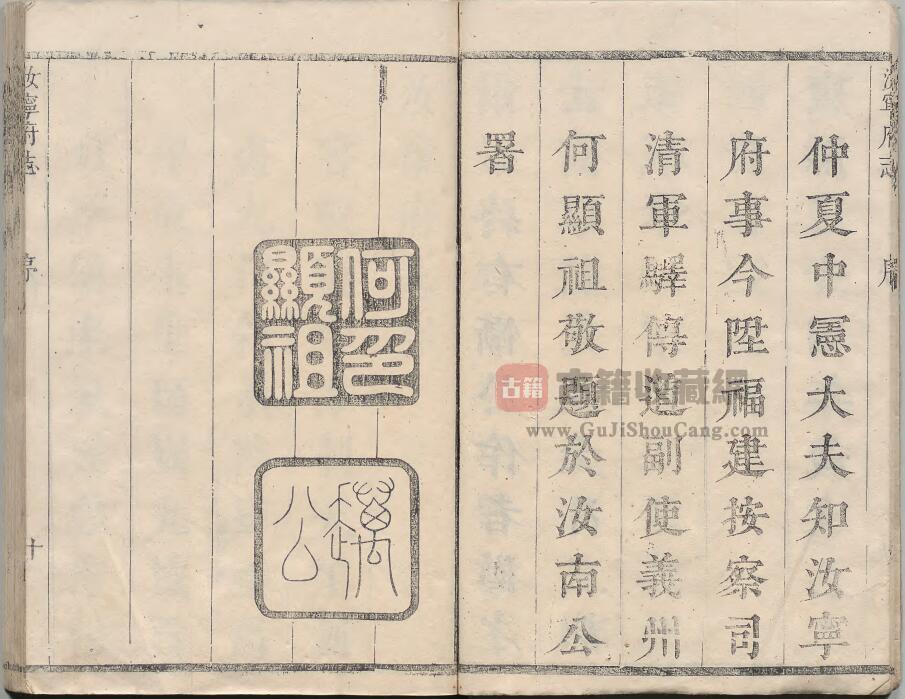 汝寧府志
序
仲夏中憲大夫知汝寧
府事今陞福建按察司
清軍驛傳道副使義州
何顯祖敬題於汝南公
署
何印
顯祖
公
汝寧府志
序
十
古籍
古籍收藏網
www.GuJiShouCang.com